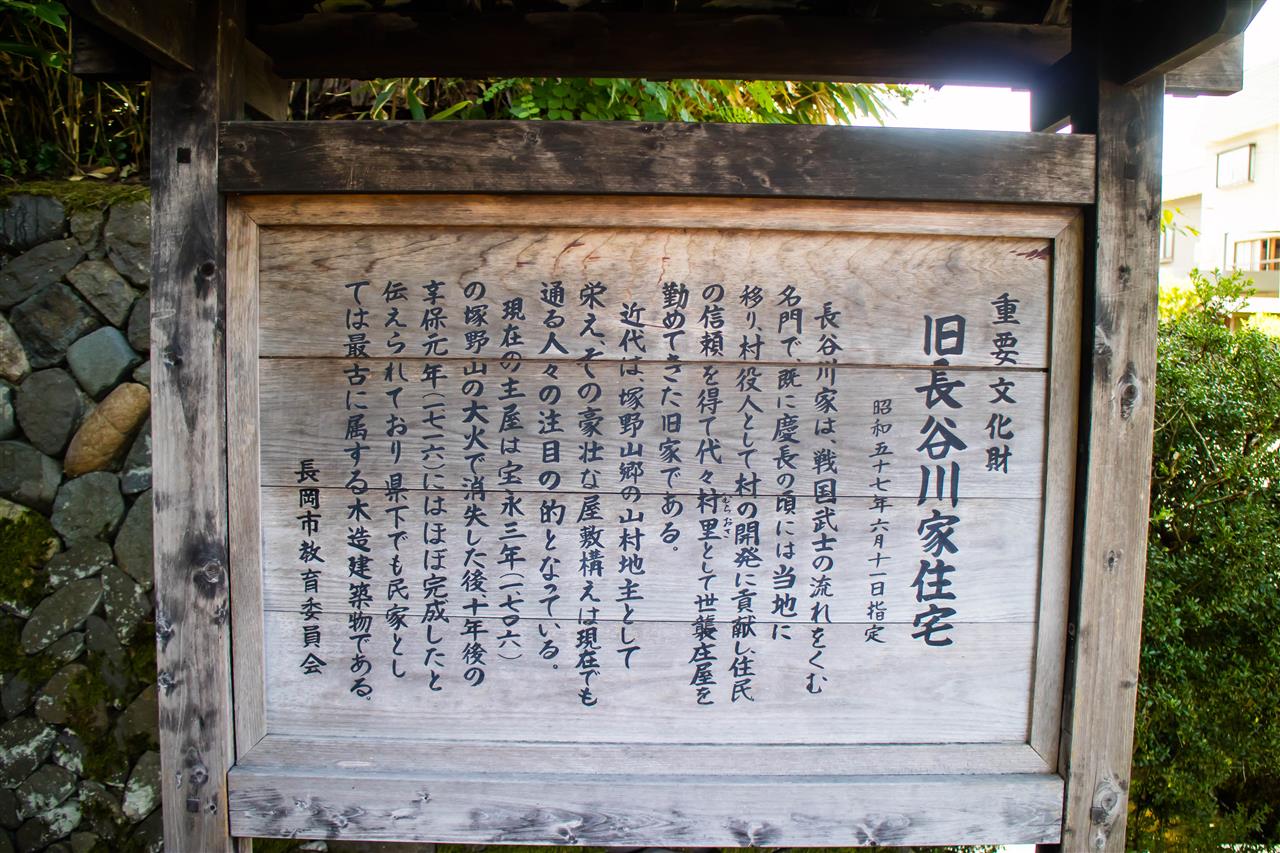 重要文化財
旧長谷川家住宅
昭和五十七年六月十一日指定
長谷川家は、戦国武士の流れをくむ
名門で、既に慶長の頃には当地に
移り、村役人として村の開発に貢献し、住民
の信頼を得て代々村里として世襲庄屋を
むらおさ
勤めてきた旧家である。
近代は、塚野山郷の山村地主として
栄え、その豪壮な屋敷構えは現在でも
通る人々の注目の的となっている。
現在の主屋は宝永三年(一七〇六)
の塚野山の大火で消失した後十年後の
享保元年(一七一六)にはほぼ完成したと
伝えられており県下でも民家とし
ては最古に属する木造建築物である。
長岡市教育委員会